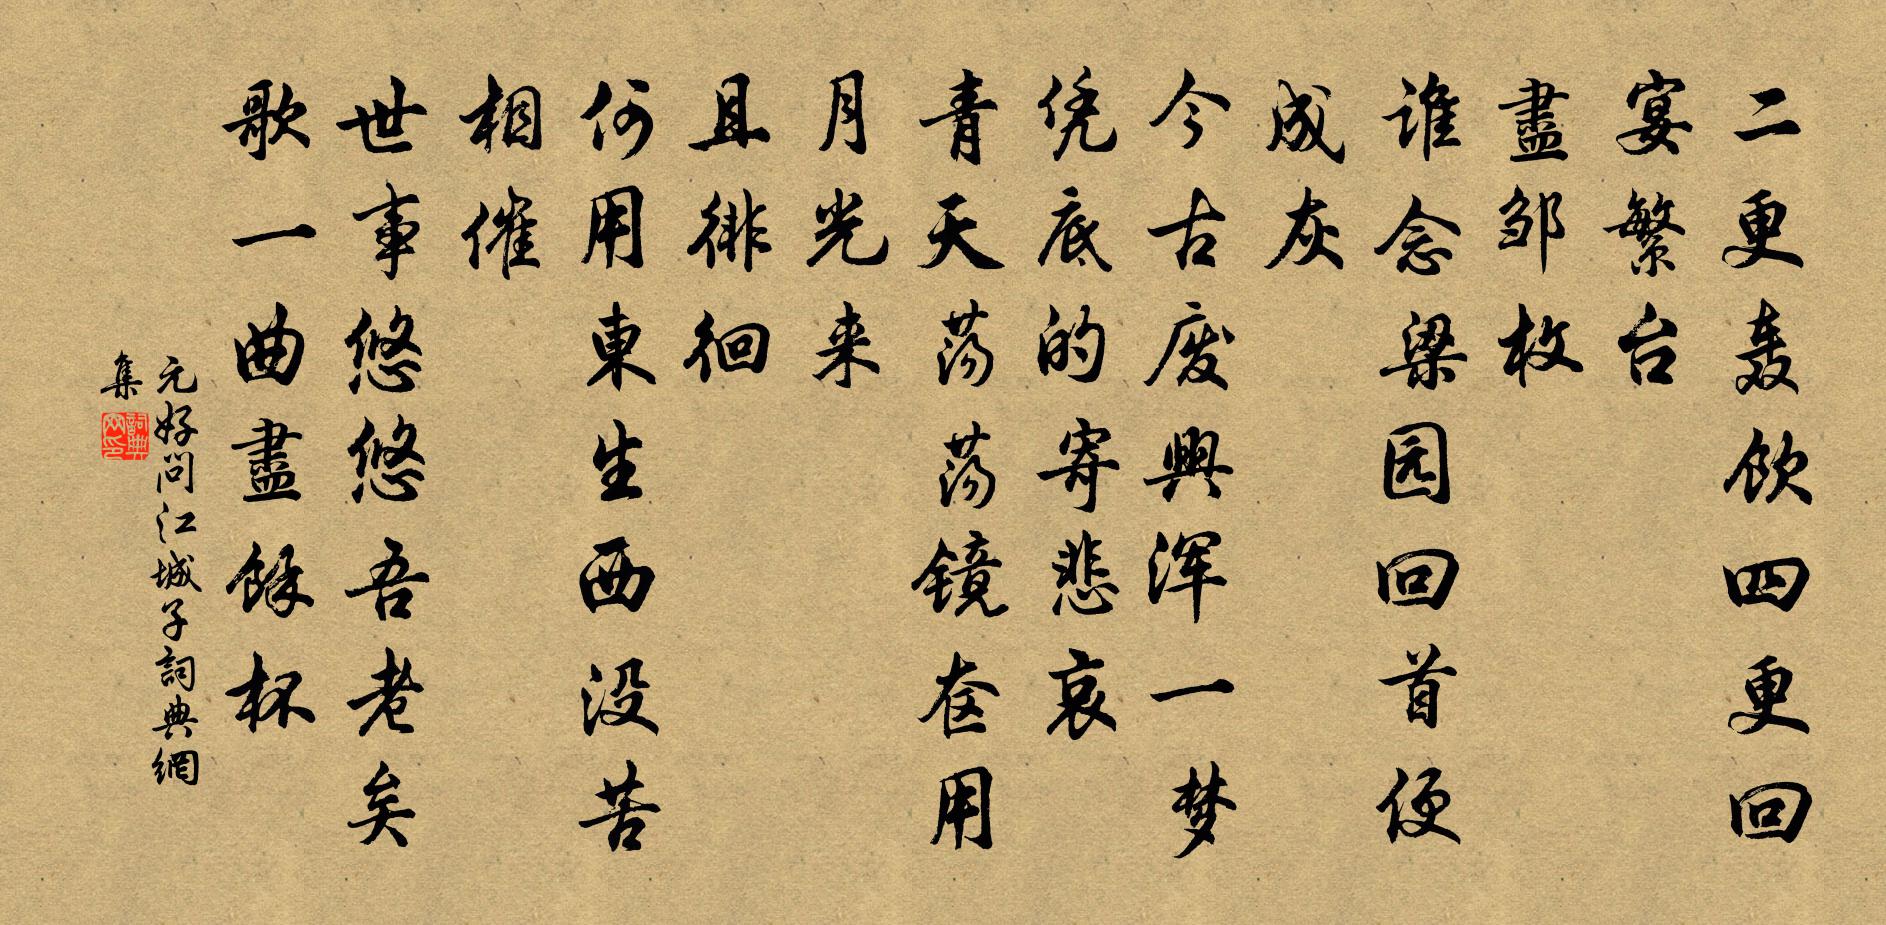 二更轰饮四更回
宴繁台
盡邹枚
谁念梁园回首便
成灰
今古废興浑一梦
凭底的寄悲哀
青天荡荡镜奁用
月光来
且徘徊
何用東生西没苦
相催
世事悠悠吾老矣
歌一曲盡馀杯
元好问江城子詞典網
集
詞典
网印